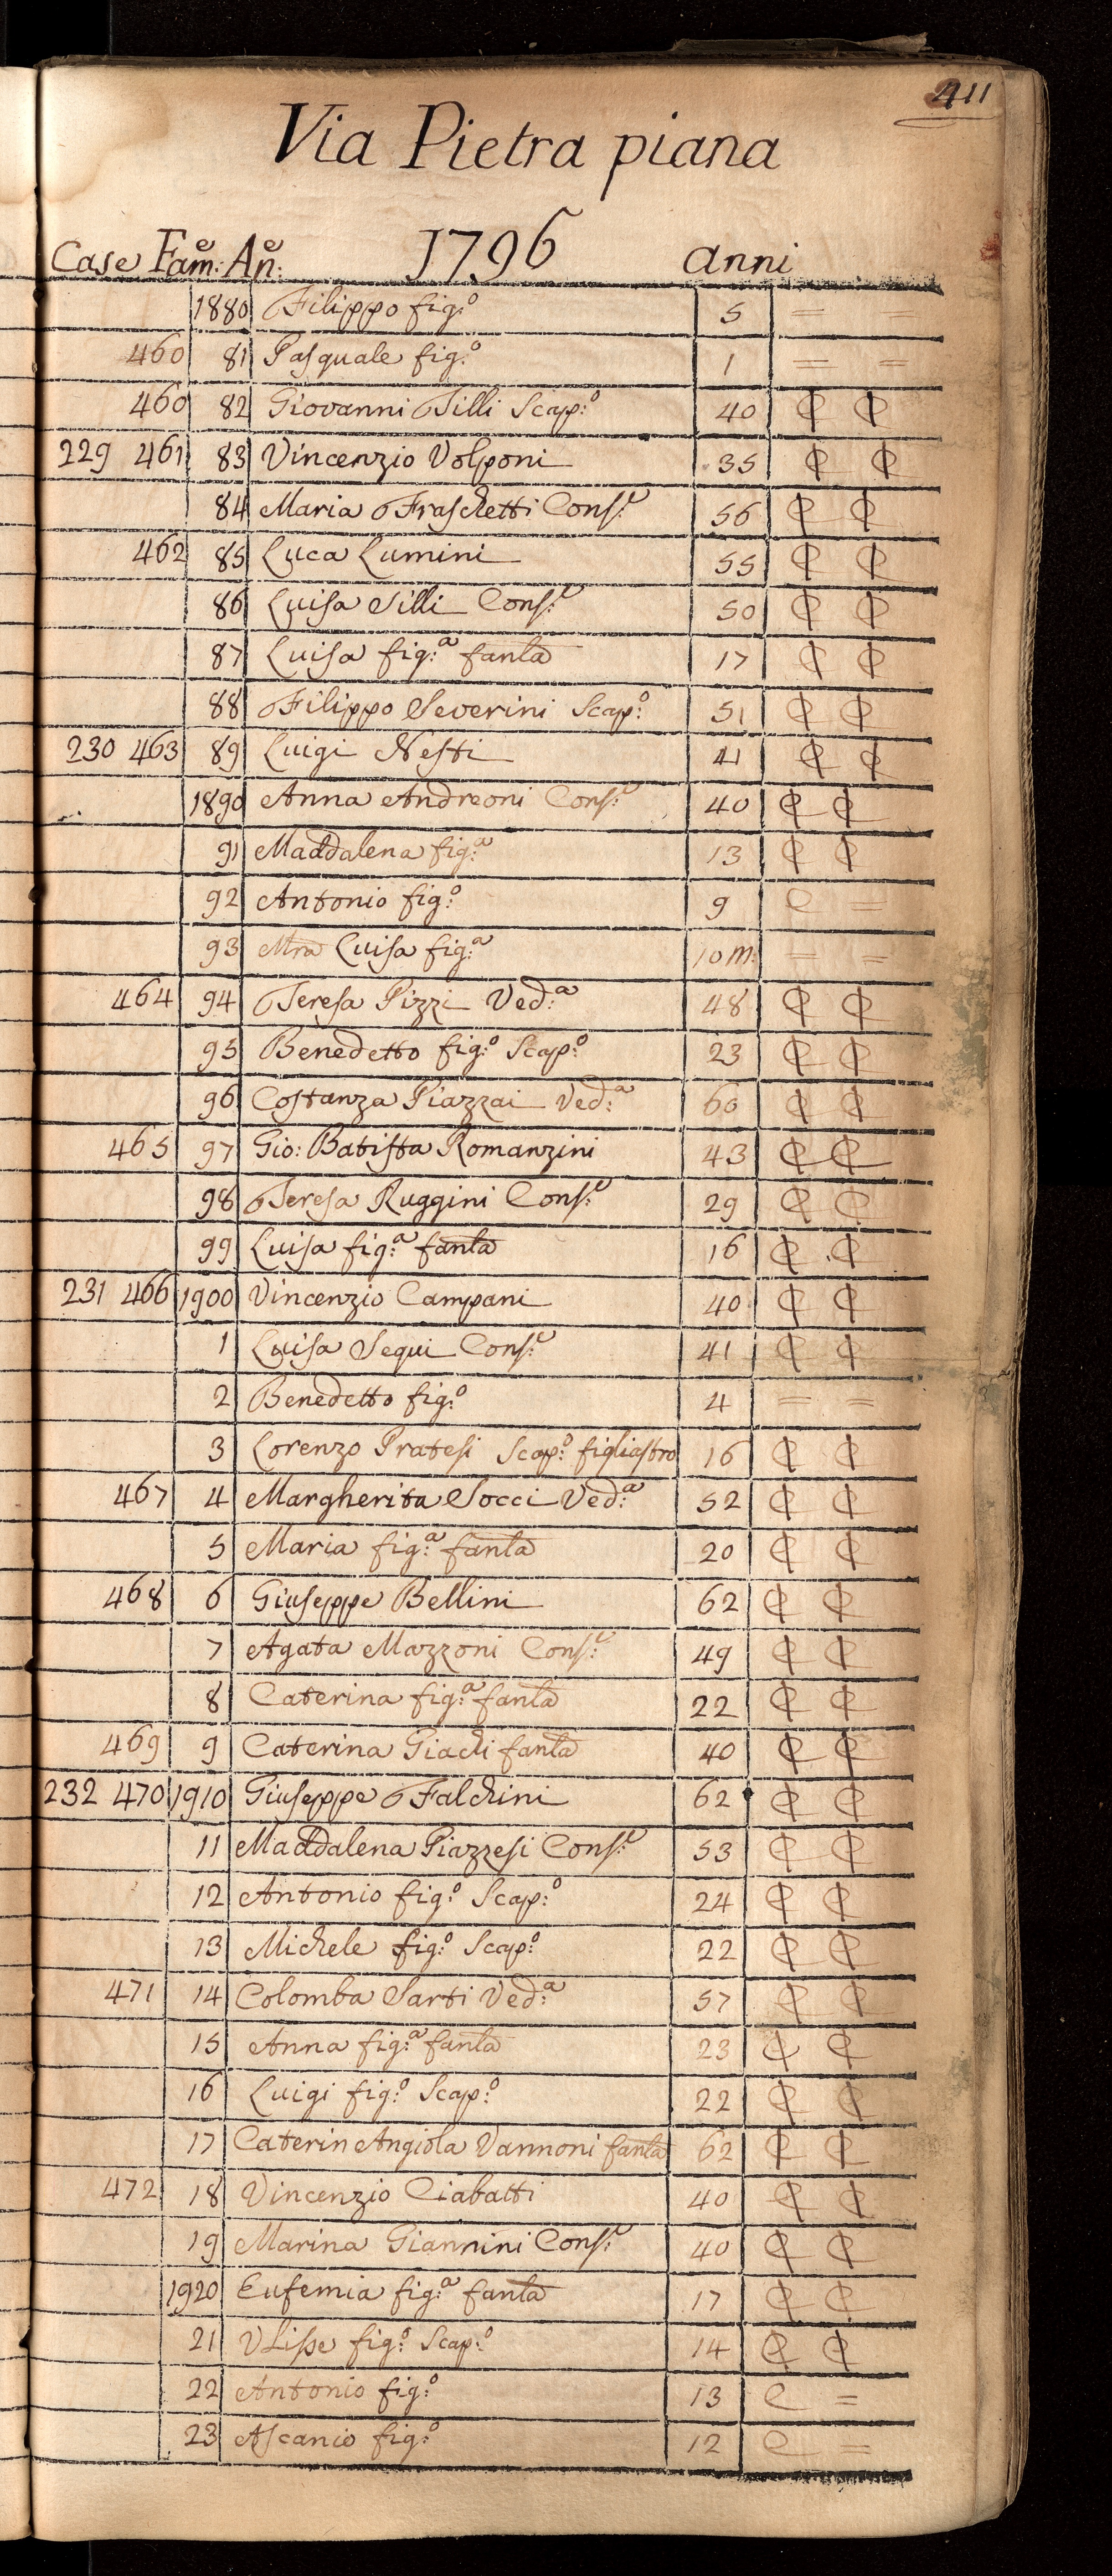 411
Via Pietra piana
Case Fam:e An:e 1796 anni
1880 Filippo fig:o 5 = =
460 81 Pasquale fig:o 1 = =
460 82 Giovanni Tilli Scap:o 40 ₵ ₵
229 461 83 Vincenzio Volponi 35 ₵ ₵
84 Maria Fraschetti Cons:e 56 ₵ ₵
462 85 Luca Lumini 55 ₵ ₵
86 Luisa Silli Cons:e 50 ₵ ₵
87 Luisa fig:a fanla 17 ₵ ₵
88 Filippo Severini Scap:o 51 ₵ ₵
230 463 89 Luigi Nesti 41 ₵ ₵
1890 Anna Andreoni Cons:e 40 ₵ ₵
91 Maddalena fig:a 13 ₵ ₵
92 Antonio fig:o 9 C =
93 Mra Luisa fig:a 10 m: = =
464 94 Teresa Pizzi Ved:a 48 ₵ ₵
95 Benedetto fig:o Scap:o 23 ₵ ₵
96 Costanza Piazzai Ved:a 60 ₵ ₵
465 97 Gio: Batista Romanzini 43 ₵ ₵
98 Teresa Ruggini Cons:e 29 ₵ ₵
99 Luisa fig:a fanla 16 ₵ ₵
231 466 1900 Vincenzio Campani 40 ₵ ₵
1 Luisa Segui Cons:e 41 ₵ ₵
2 Benedetto fig:o 4 = =
3 Lorenzo Pratesi Scap:o figliastro 16 ₵ ₵
467 4 Margherita Socci Ved:a 52 ₵ ₵
5 Maria fig:a fanla 20 ₵ ₵
468 6 Giuseppe Bellini 62 ₵ ₵
7 Agata Mazzoni Cons:e 49 ₵ ₵
8 Caterina fig:a fanla 22 ₵ ₵
469 9 Caterina Giachi fanla 40 ₵ ₵
232 470 1910 Giuseppe Falchini 62 ₵ ₵
11 Maddalena Piazzesi Cons:e 53 ₵ ₵
12 Antonio fig:o Scap:o 24 ₵ ₵
13 Michele fig:o Scap:o 22 ₵ ₵
471 14 Colomba Sarti Ved:a 57 ₵ ₵
15 Anna fig:a fanla 23 ₵ ₵
16 Luigi fig:o Scap:o 22 ₵ ₵
17 Caterin Angiola Vannoni fanla 62 ₵ ₵
472 18 Vincenzio Ciabatti 40 ₵ ₵
19 Marina Giannini Cons:e 40 ₵ ₵
1920 Eufemia fig:a fanla 17 ₵ ₵
21 Ulisse fig:o Scap:o 14 ₵ ₵
22 Antonio fig:o 13 C =
23 Ascanio fig:o 12 C =